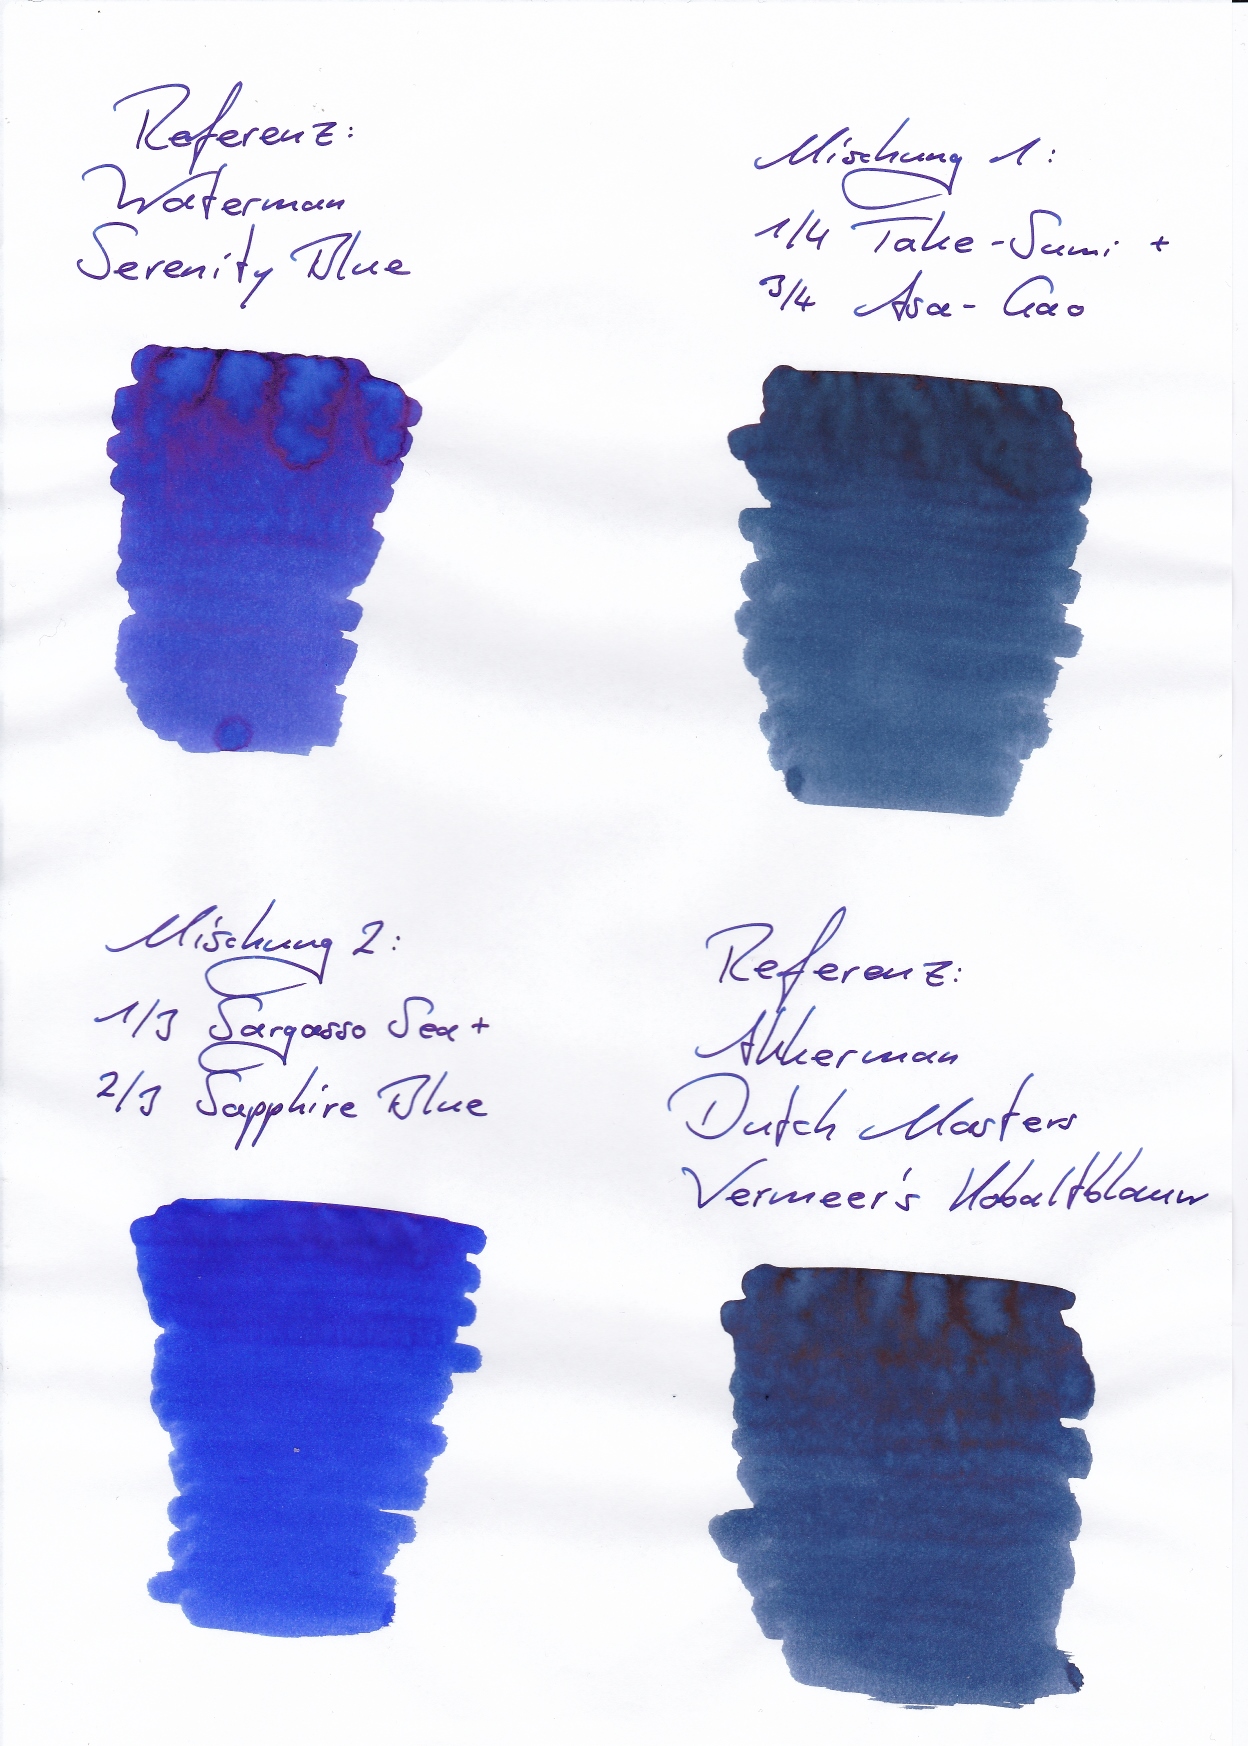 Referenz:
Waterman
Serenity Blue
Mischung 1:
1/4 Take-Sumi +
3/4 Asa-Gao
Mischung 2:
1/3 Sargasso Sea +
2/3 Sapphire Blue
Referenz:
Akkerman
Dutch Masters
Vermeer's Kobaltblauw